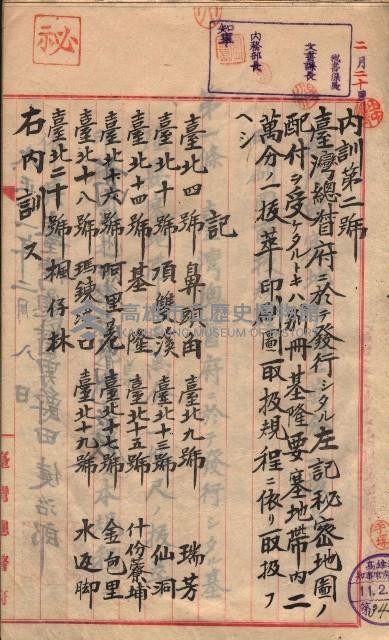 秘
二月二十
秘書係受
文書課長
内務部長
知事
内訓第二號
臺灣總督府ニ於テ發行シタル左記秘密地圖ノ
配付ヲ受ケタルトキハ別冊基隆要塞地帶内二
萬分ノ一拔萃印刷圖取扱規程ニ依リ取扱フ
ヘシ
記
臺北四號 鼻頭角 臺北九號 瑞芳
臺北十號 頂雙溪 臺北十三號 仙洞
臺北十四號 基隆 臺北十五號 什份藔埔
臺北十六號 阿里荖 臺北十七號 金包里
臺北十八號 瑪鋉港口 臺北十九號 水返脚
臺北二十號 楓仔林
右内訓ス
臺灣總督府
高雄市立歷史博物館
高雄
11.2.